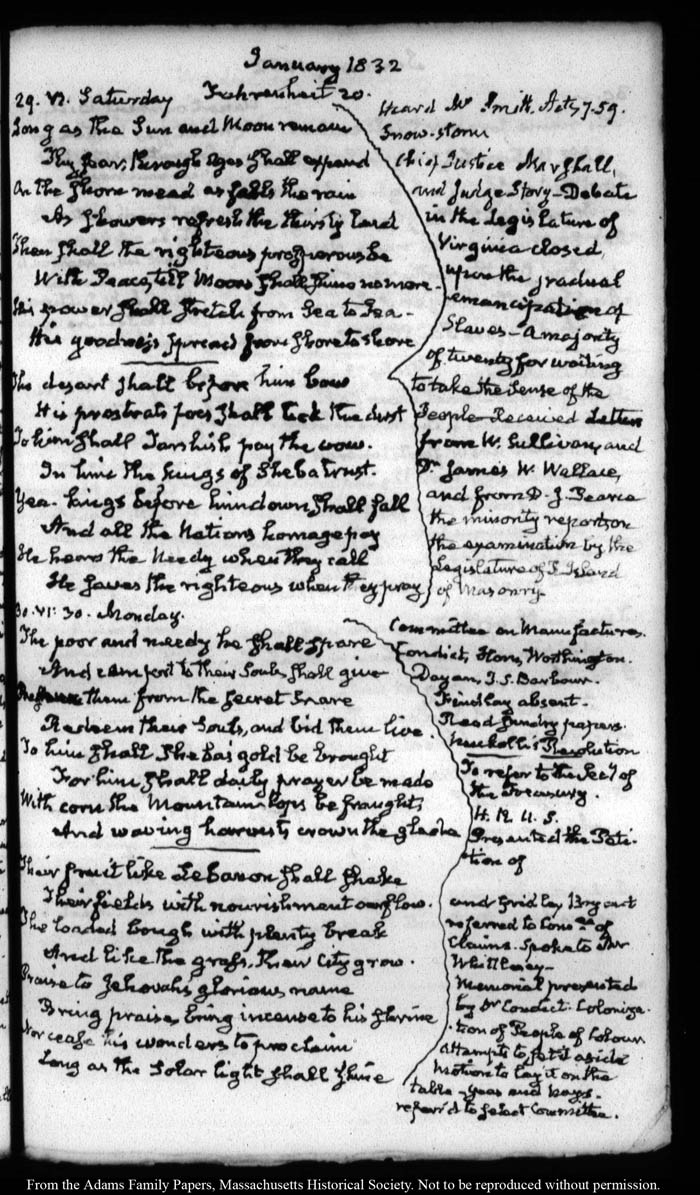 January 1832
29. VI. Saturday Fahrenheit 20.
Long as the Sun and Moon remain
Thy fear, through ages shall expand
On the shorn mead as falls the rain
As showers refresh the thirsty land
Then shall the righteous prosperous be
With Peace, till Moons shall shine no more-
His power shall stretch from Sea to Sea-
His goodness spread from shore to shore
The desart shall before him bow
His prostrate foes shall lick the dust
To him shall Tarshish pay the vow.
In him the kings of Sheba trust.
Yea. kings before him down shall fall
And all the Nations homage pay
He hears the Needy when they call
He saves the righteous when they pray
Heard Mr Smith. Acts, 7. 59.
Snow-storm
Chief Justice Marshall,
and Judge Story-Debate
in the Legislature of
Virginia closed,
upon the gradual
emancipation of
Slaves-a majority
of twenty for waiting
to take the sense of the
People-Received Letters
from W. Sullivan, and
Dr James W. Wallace,
and from D. J. Pearce
the minority report on
the examination by the
Legislature of R. Island
of Masonry.
30. VI: 30. Monday.
The poor and needy he shall spare
And comfort to their Souls shall give
them from the secret snare
Redeem their Souls, and bid them live.
To him shall Sheba's gold be brought
For him shall daily prayer be made
With corn the Mountain tops be fraught,
And waving harvests crown the glade
Their fruit like Lebanon shall shake
Their fields with nourishment o'erflow.
The loaded bough with plenty break
And like the grass, their City grow.
Praise to Jehovah's glorious name
Bring praise, bring incense to his shrine
Nor cease his wonders to proclaim
Long as the Solar light shall shine
Committee on Manufactures.
Condict, Horn, Worthington.
Dayan, J. S. Barbour.
Findlay absent.
Read sundry papers.
Resolution
To refer to the Secy of
the Treasury.
H. R. U. S.
Presented the Peti-
tion of
and Gridley Bryant
referred to Comee of
Claims. Spoke to Mr
Whittlesey-
Memorial presented
by Dr Condict. Coloniza-
tion of People of Colour
Attempt to set it aside
Motion to lay it on the
table-yeas and nays-
referr'd to select Committee.
From the Adams Family Papers, Massachusetts Historical Society. Not to be reproduced without permission.